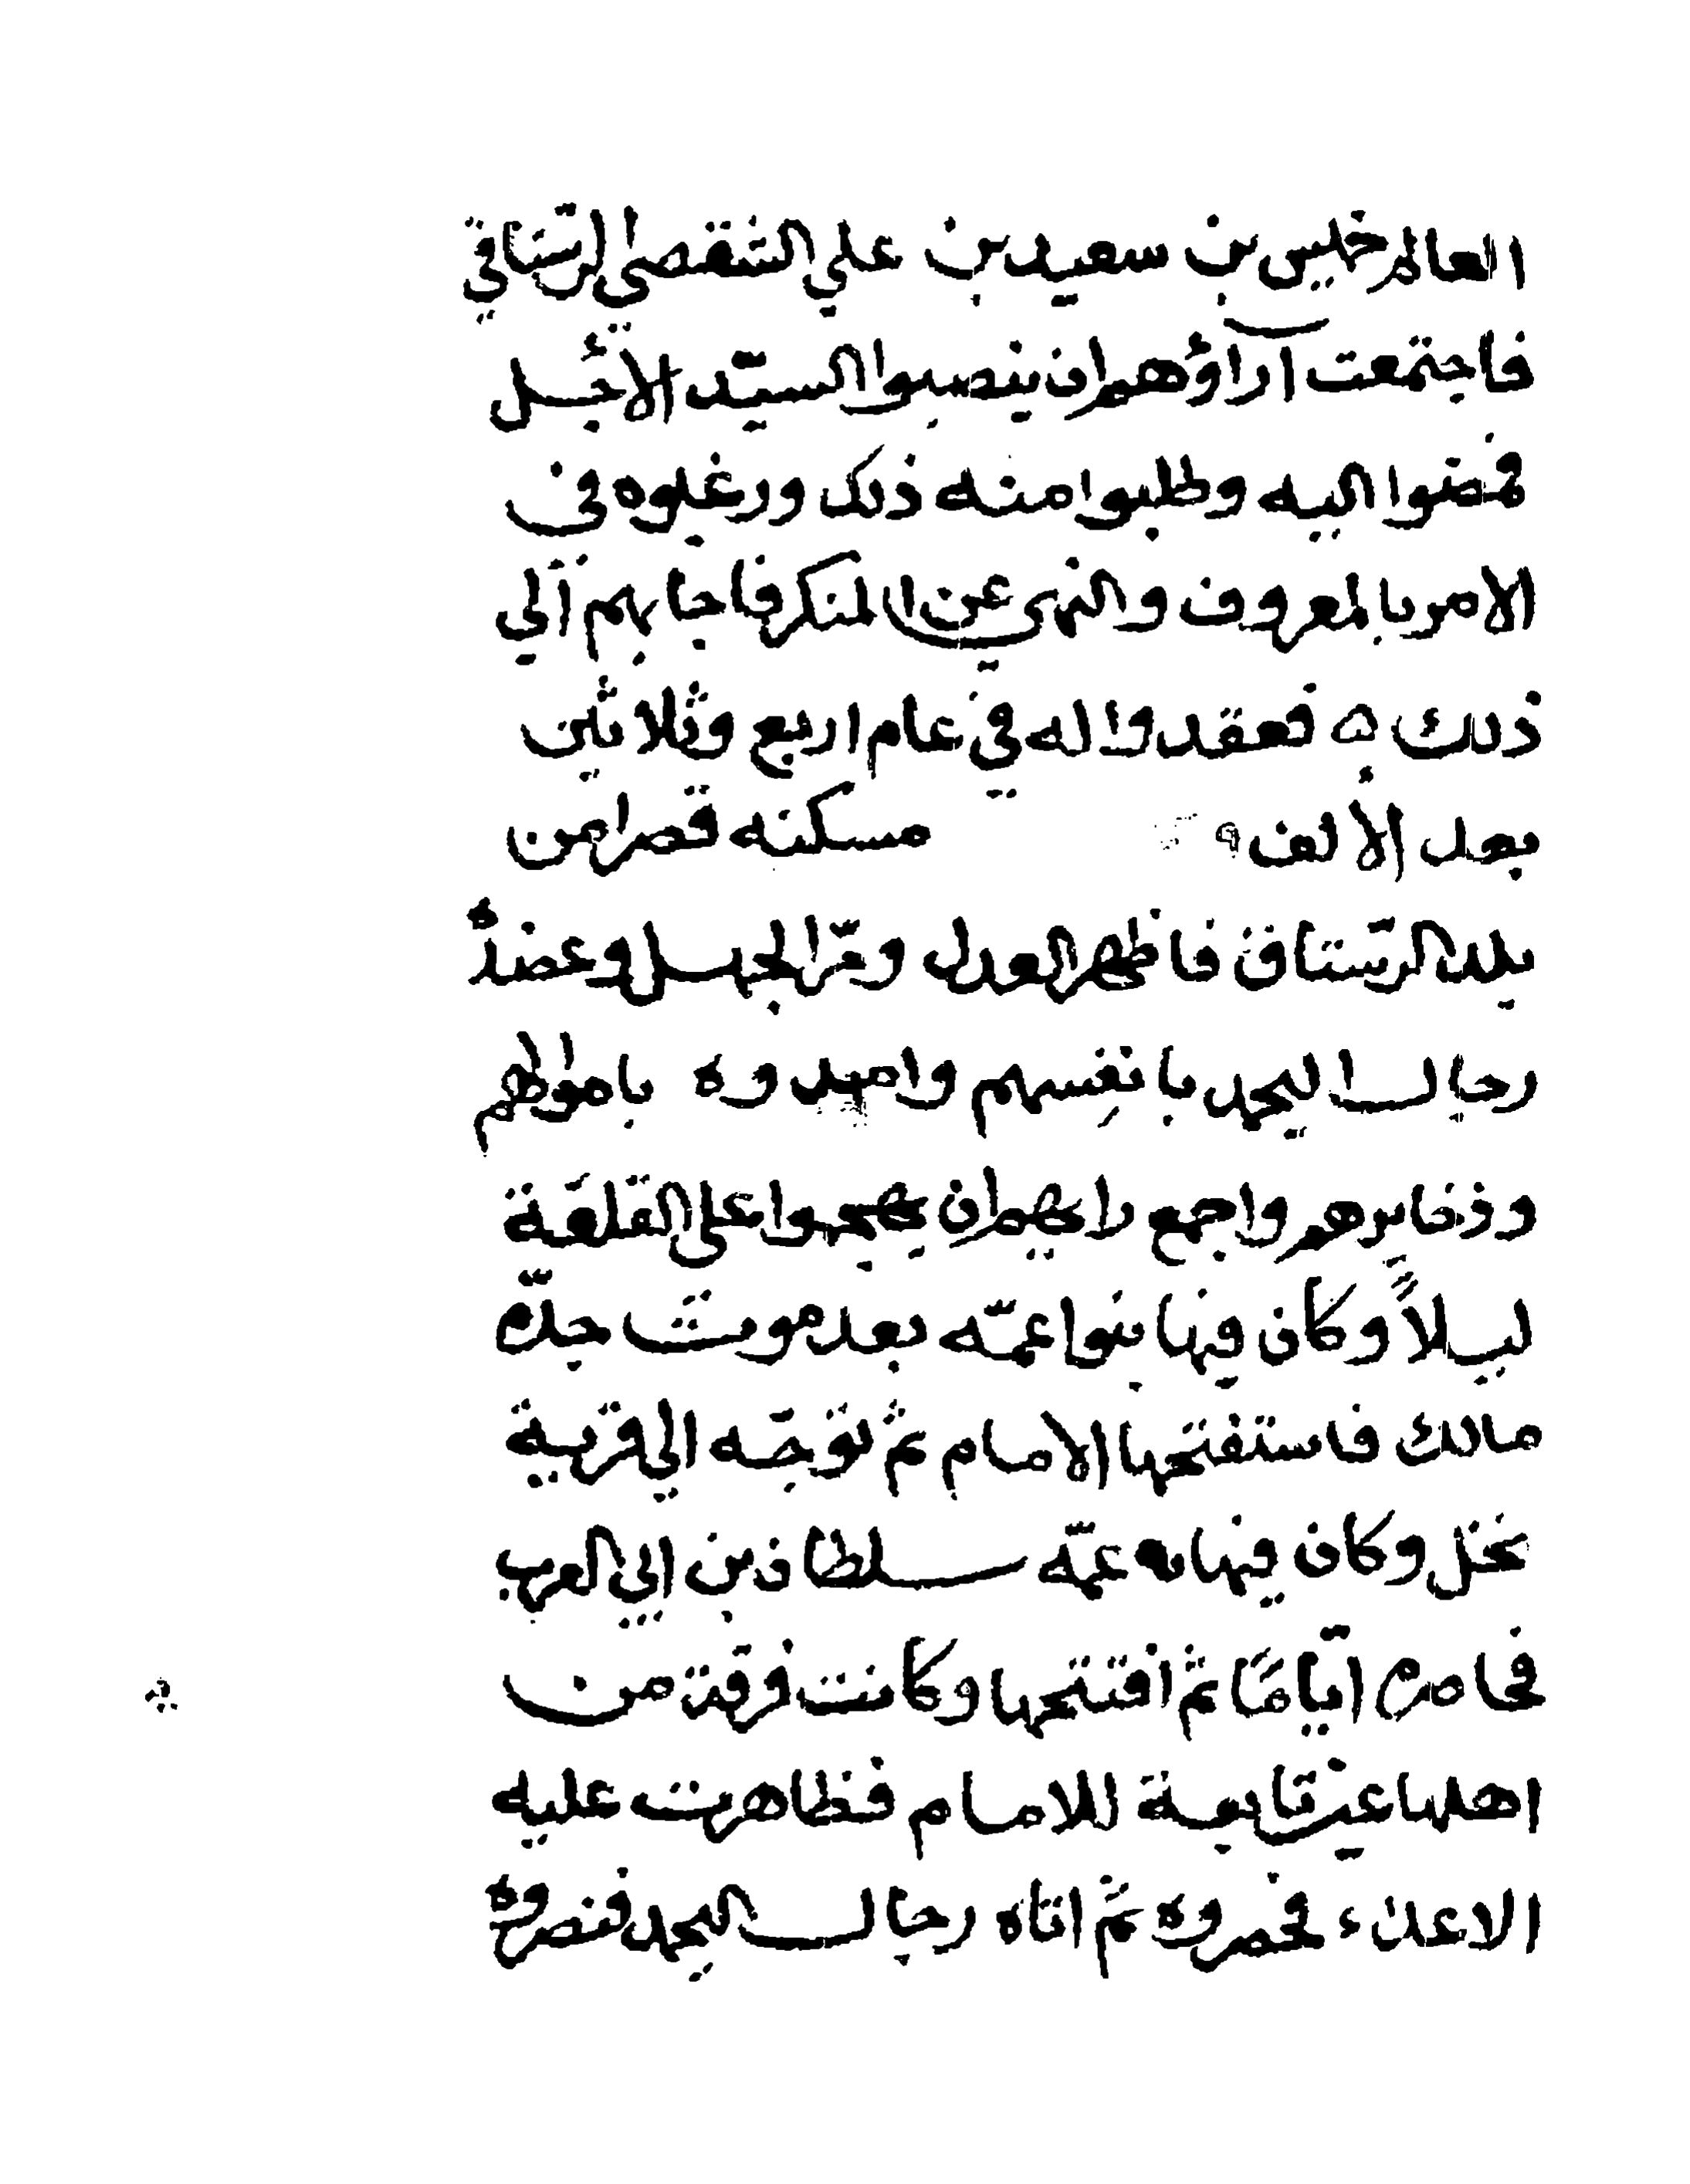 العالم خميس بن سعيد بن علي الشقصي الرّستاقي
فاجتمعت آراؤهم ان ينصبوا السيّد الأجّل
فمضوا اليه وطلبوا منه ذلك ورغبوه في
الامر بالمعروف والنهي عن المنكر فاجابهم الي
ذلك ه فعقدوا له في عام اربع وثلاثين
بعد الألف مسكنه قصرا من
بلد الرّستاق فاظهر العدل ودمّر الجهل وعضدهُ
رجال اليحمد بانفسهم وامدوه باموالهم
وذخايرهم واجمع رايهم ان يهجموا على القلعة
ليلاً وكان فيها بنوا عمّه بعد موت جدّه
مالك فاستفتحها الامام ثم توجّه الي قرية
نخل وكان فيها عمّه سلطان بن ابي العرب
فحاصره ايّامًا ثم افتتحها وكانت فرقة من
اهلها غير تابعة للامام فظاهرت عليه
الاعداء فحصروه ثم اتاه رجال اليحمد فنصروه